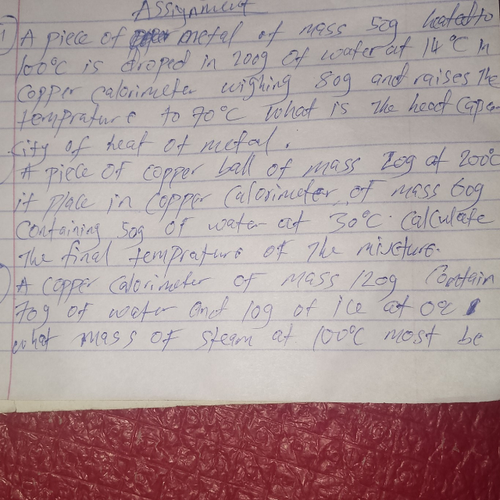 Assignment
1) A piece of metal of mass 50g heated to
100°C is droped in 200g of water at 14°C in
copper calorimeter wighing 80g and raises the
temprature to 70°C what is the heat capa-
city of heat of metal.
A piece of copper ball of mass 20g at 200°C
it place in copper calorimeter of mass 60g
containing 50g of water at 30°C. calculate
the final temprature of the mixture.
) A copper calorimeter of mass 120g contain
70g of water and 10g of ice at 0°C
what mass of steam at 100°C most be